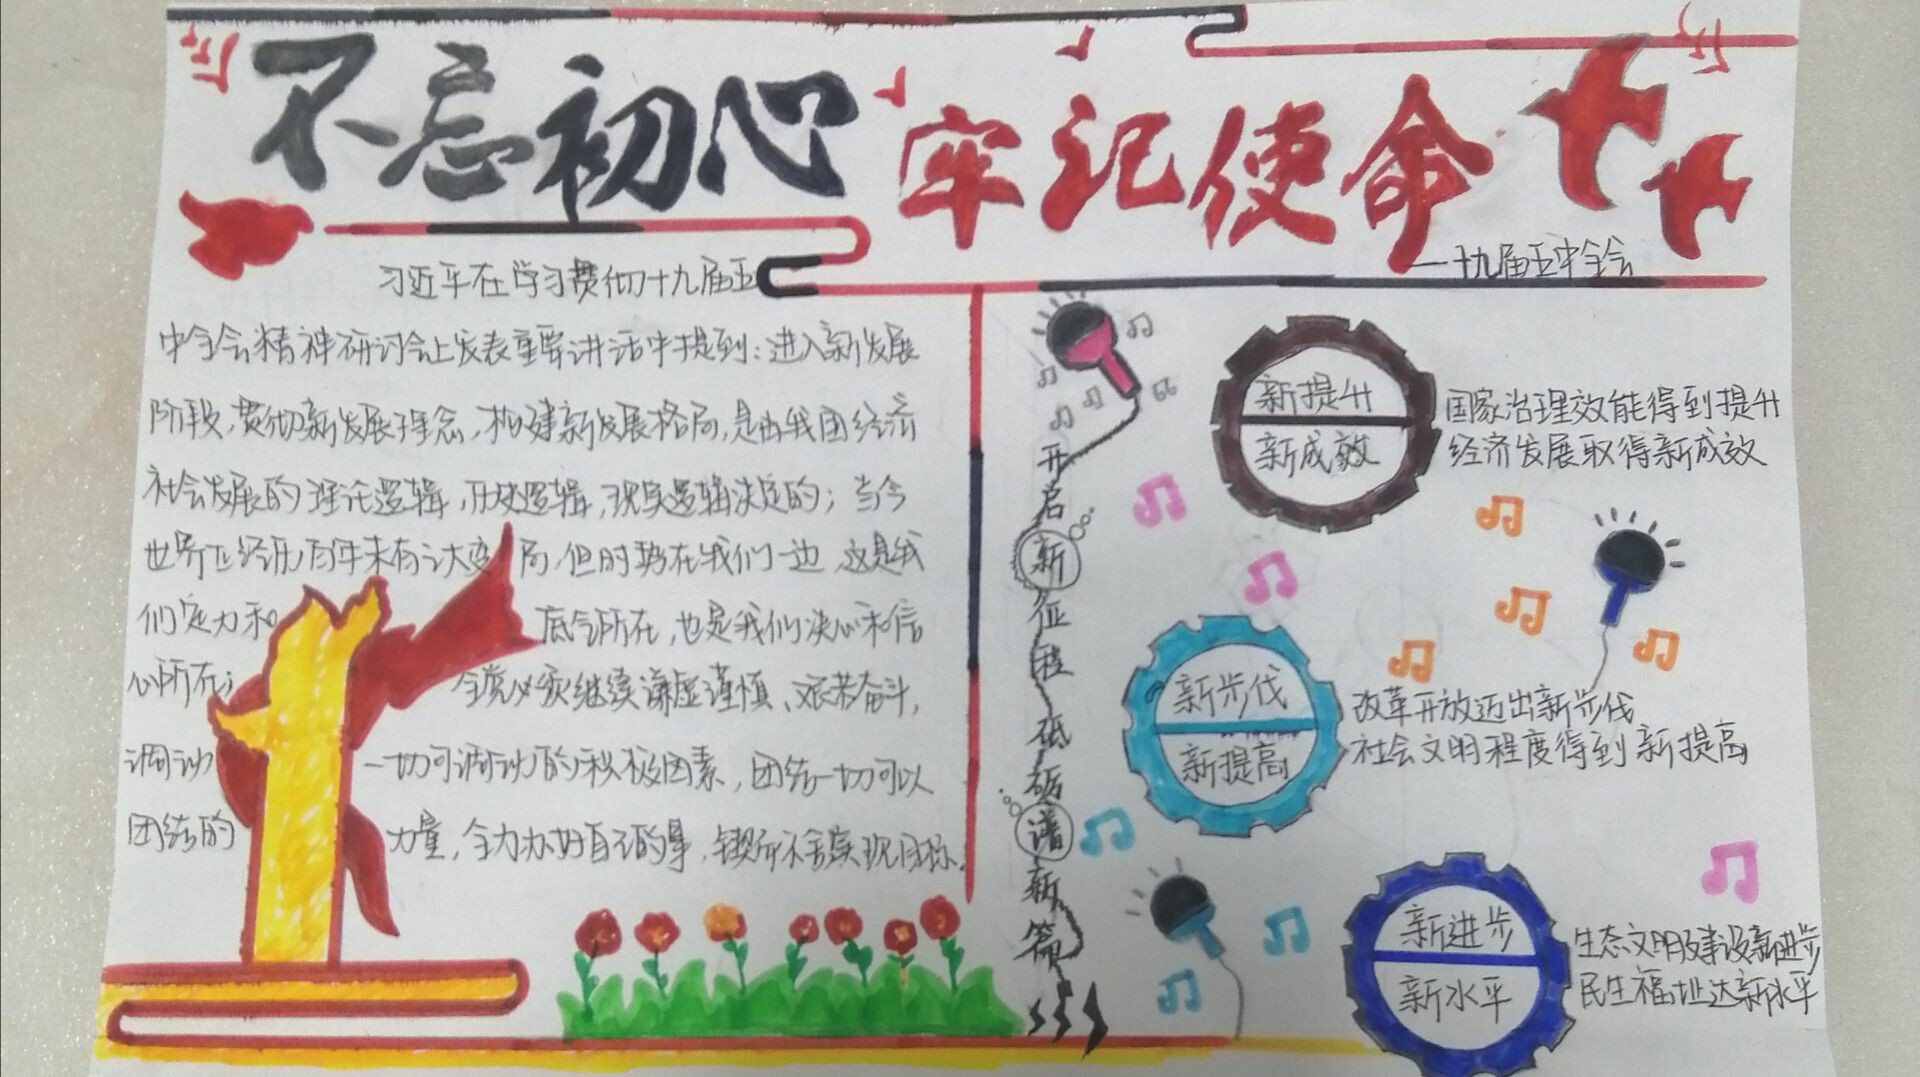 不忘初心 牢记使命
一十九届五中全会
习近平在学习贯彻十九届五
中全会精神研讨会上发表重要讲话中提到：进入新发展
阶段，贯彻新发展理念，构建新发展格局，是由我国经济
社会发展的理论逻辑，历史逻辑，现实逻辑决定的；当今
世界正经历百年未有之大变局，但时势在我们一边 这是我
们定力和底气所在，也是我们决心和信
心所在；全党必须继续谦虚谨慎、艰苦奋斗，
调动一切可调动的积极因素，团结一切可以
团结的力量，全力办好自己的事，锲而不舍实现目标。
开启新征程 砥砺谱新篇
新提升
新成效
国家治理效能得到提升
经济发展取得新成效
新步伐
新提高
改革开放迈出新步伐
社会文明程度得到新提高
新进步
新水平
生态文明建设新进步
民生福祉达新水平